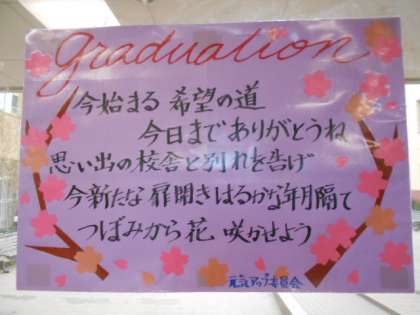 graduation
今始まる 希望の道
今日まで ありがとうね
思い出の校舎と別れを告げ
今新たな 扉開き はるかな年月隔て
つぼみから花 咲かせよう
元気アップ委員会